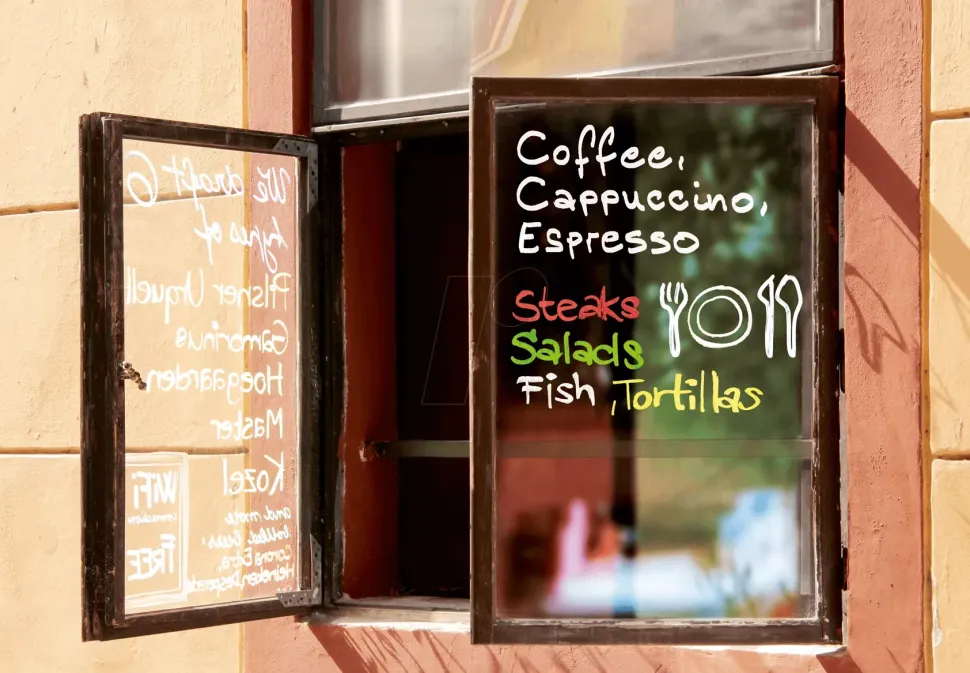 We draft 6
types of
Pilsner Urquell
Gambrinus
Hoegaarden
Master
Kozel
and more
WiFi
Connection
FREE
Corona Extra,
Heineken, Desperado
Coffee,
Cappuccino,
Espresso
Steaks
Salads
Fish ,Tortillas